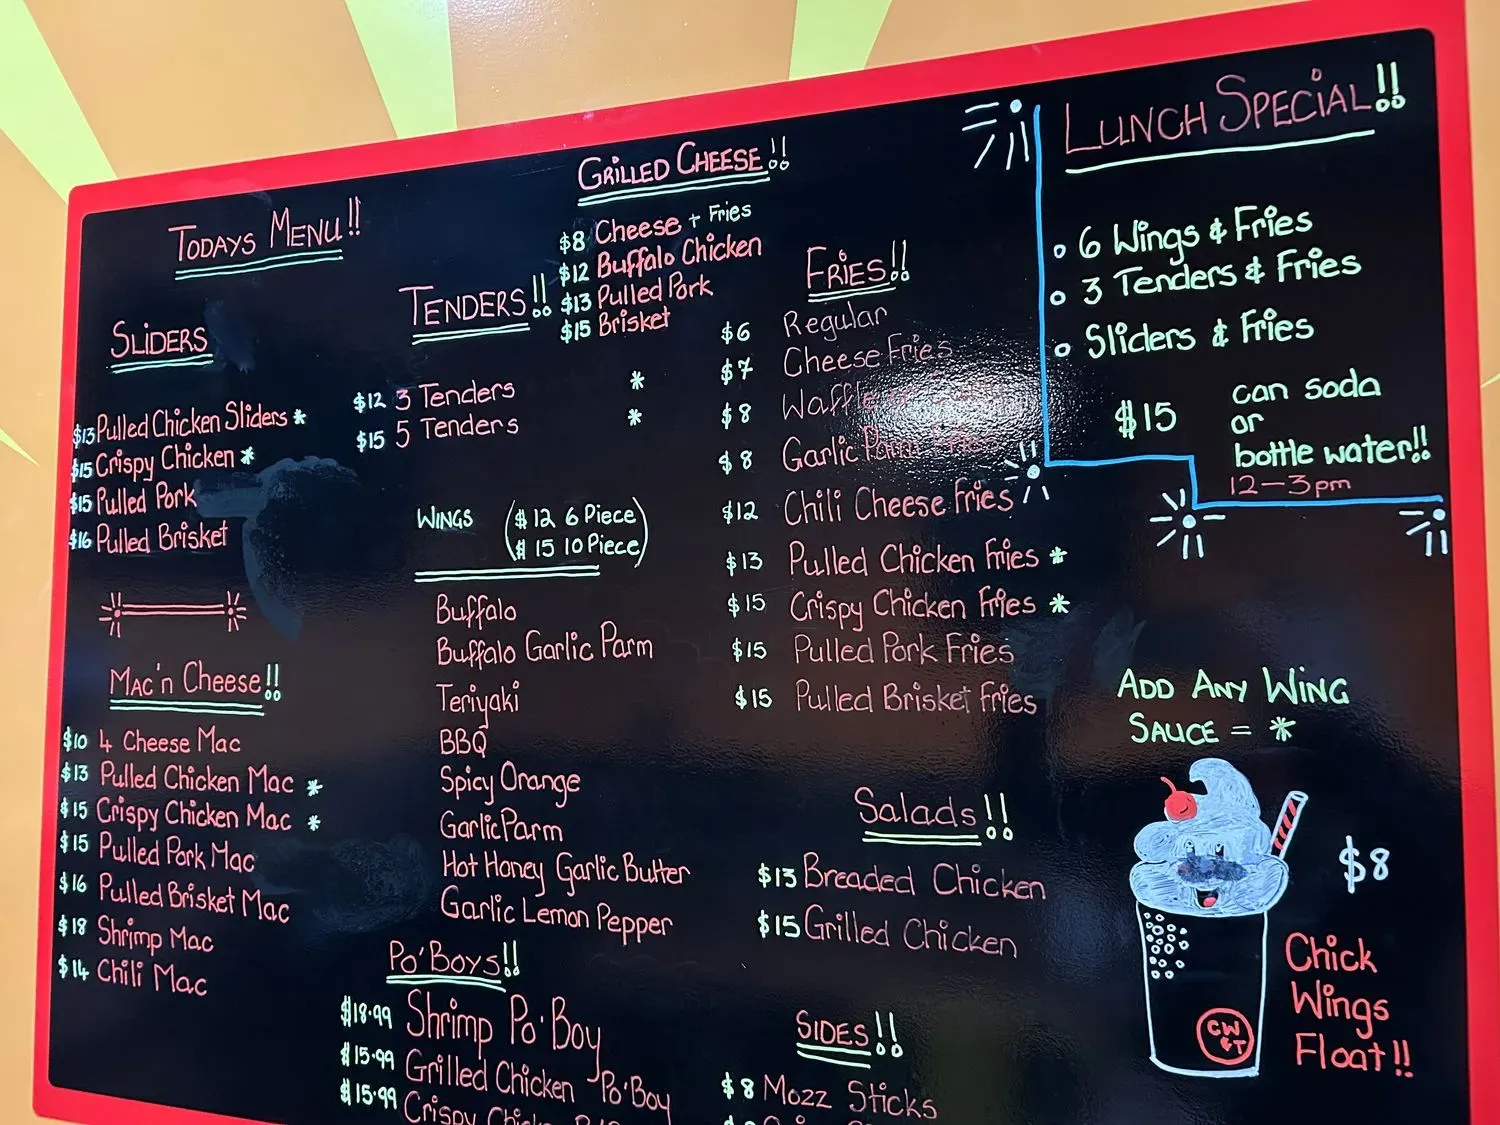 TODAYS MENU!!
SLIDERS
$13 Pulled Chicken Sliders *
$15 Crispy Chicken *
$15 Pulled Pork
$16 Pulled Brisket
MAC'n Cheese!!
$10 4 Cheese Mac
$13 Pulled Chicken Mac *
$15 Crispy Chicken Mac *
$15 Pulled Pork Mac
$16 Pulled Brisket Mac
$18 Shrimp Mac
$14 Chili Mac
TENDERS!!
$12 3 Tenders *
$15 5 Tenders *
WINGS ($12 6 Piece
$15 10 Piece)
Buffalo
Buffalo Garlic Parm
Teriyaki
BBQ
Spicy Orange
Garlic Parm
Hot Honey Garlic Butter
Garlic Lemon Pepper
PO'BOYS!!
$18.99 Shrimp Po'Boy
$15.99 Grilled Chicken Po'Boy
$15.99 Crispy
GRILLED CHEESE!!
$8 Cheese + Fries
$12 Buffalo Chicken
$13 Pulled Pork
$15 Brisket
FRIES!!
$6 Regular
$7 Cheese Fries
$8 Waffle
$8 Garlic Parm Fries
$12 Chili Cheese Fries
$13 Pulled Chicken Fries *
$15 Crispy Chicken Fries *
$15 Pulled Pork Fries
$15 Pulled Brisket Fries
Salads!!
$13 Breaded Chicken
$15 Grilled Chicken
SIDES!!
$8 Mozz Sticks
LUNCH SPECIAL!!
6 Wings & Fries
3 Tenders & Fries
Sliders & Fries
$15 can soda
or
bottle water!!
12-3pm
ADD ANY WING
SAUCE = *
$8
Chick
Wings
Float!!
CW
&T